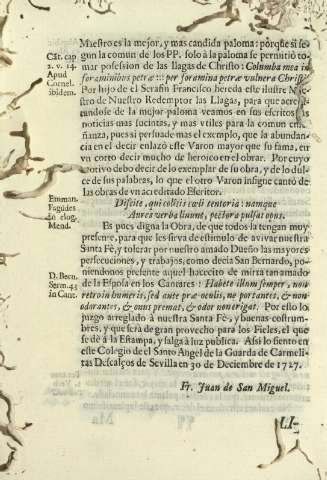 Maestro es la mejor, y mas candida paloma: porque si se-
Cãt. cap 2. v. 14. Apud Cornel. ibidem.
gun la comun de los PP. solo à la paloma se permitiò to-
mar possession de las llagas de Christo: Columba mea in
foraminibus petræ ::: per foramina petræ vulnera Christi
Por hijo de el Serafin Francisco hereda este ilustre
stro de Nuestro Redemptor las Llagas, para que
tandose de la mejor paloma veamos en sus escritos
noticias mas sucintas, y mas vtiles para la comun
ñanza, pues si persuade mas el exemplo, que la abundan-
cia en el decir enlazò este Varon mayor que su fama, en
vn corto decir mucho de heroico en el obrar. Por cuyo
motivo debo decir de lo exemplar de su obra, y de lo dul-
ce de sus palabras, lo que el otro Varon insigne cantò de
las obras de vn acreditado Escritor.
Emman. Faguides in elog. Mend.
Discite, qui colitis cœli tentoria: namque
Aurea verba linunt, pectora pulsat opus.
Es pues digna la Obra, de que todos la tengan muy
presente, para que les sirva de estimulo de avivar nuestra
Santa Fè, y tolerar por nuestro amado Dueño las mayores
persecuciones, y trabajos, como decia San Bernardo, po-
D. Bern. Serm. 43 in Cant.
niendonos presente aquel hacecito de mirra tan amado
de la Esposa en los Cantares: Habete illum semper, non
retro in humeris, sed ante præ oculis, ne portantes, & non
odorantes, & onus premet, & odor non erigat. Por esto lo
juzgo arreglado à nuestra Santa Fè, y buenas costum-
bres, y que serà de gran provecho para los Fieles, el que
se dè à la Estampa, y salga à luz publica. Assi lo siento en
este Colegio de el Santo Angel de la Guarda de Carmeli-
tas Descalços de Sevilla en 30 de Deciembre de 1727.
Fr. Juan de San Miguel.
LI-